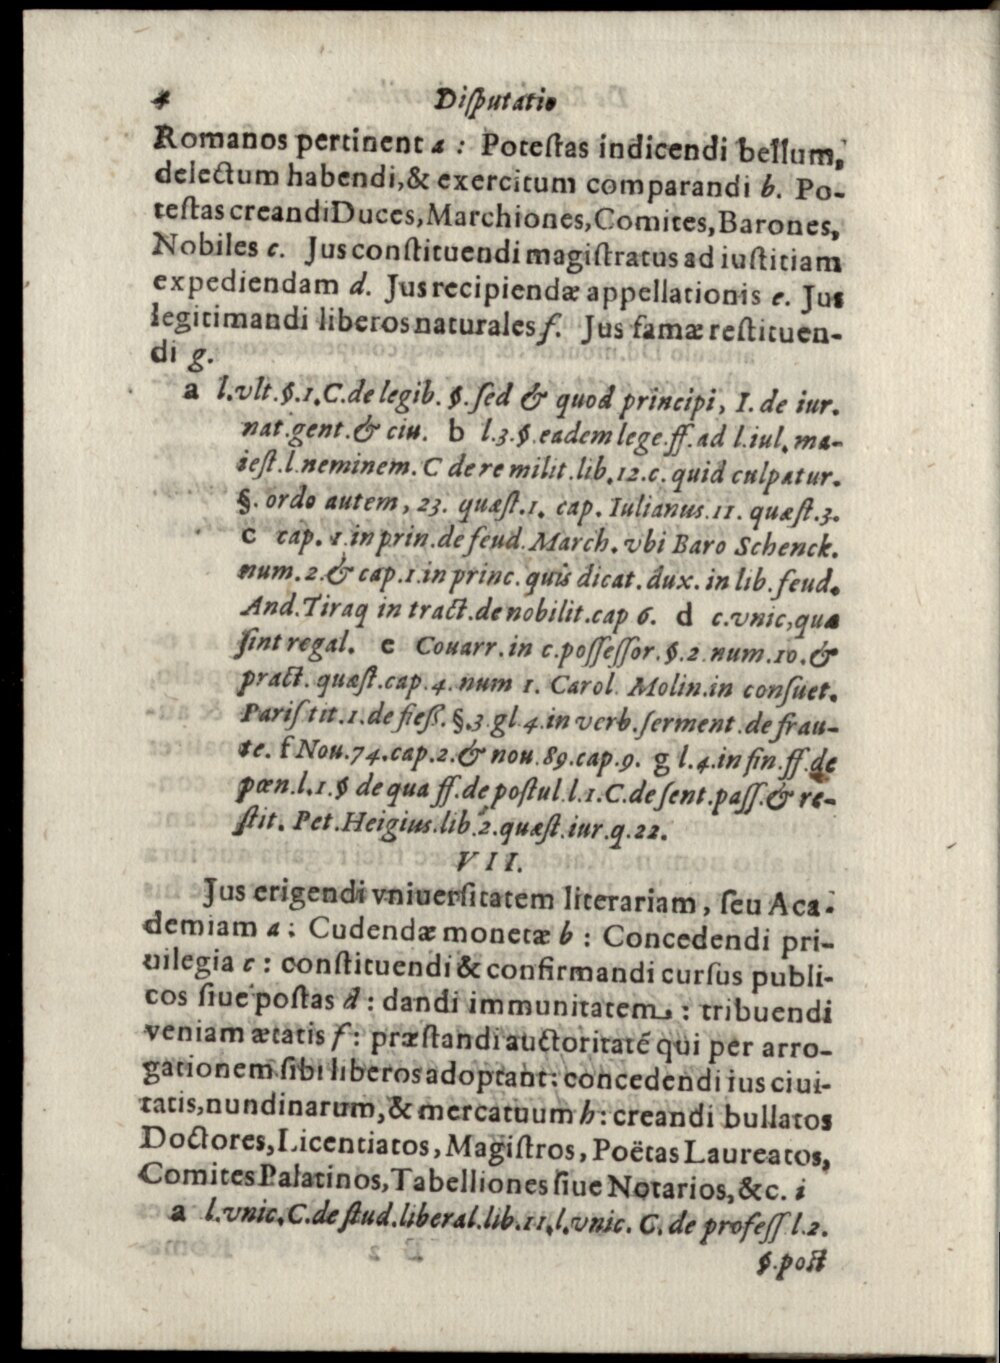 4 Disputatio
Romanos pertinent a : Potestas indicendi bellum,
delectum habendi,& exercitum comparandi b. Po-
testas creandi Duces, Marchiones, Comites, Barones,
Nobiles c. Jus constituendi magistratus ad iustitiam
expediendam d. Jus recipiendæ appellationis e. Jus
legitimandi liberos naturales f. Jus famæ restituen-
di g.
a l.vlt.§.1.C.de legib. §. sed & quod principi, I. de iur.
nat.gent.& ciu. b l.3.§.eadem lege.ff.ad l.iul.ma-
iest.l.neminem.C de re milit.lib.12.c.quid culpatur.
§. ordo autem, 23. quæst.1. cap. Iulianus.11. quæst.3.
c cap.1.in prin.de feud.March.vbi Baro Schenck.
num.2.& cap.1.in princ.quis dicat.dux.in lib.feud.
And.Tiraq in tract.de nobilit.cap 6. d c.vnic,quæ
sint regal. e Couarr.in c.possessor.§.2.num.10.&
pract. quæst.cap.4.num 1. Carol. Molin.in consuet.
Paris tit.1.de fieff.§.3.gl.4.in verb.serment.de frau-
te. f Nou.74.cap.2.& nou.89.cap.9. g l.4.in fin.ff.de
pœn.l.1.§ de qua ff.de postul.l.1.C.de sent.pass.& re-
stit. Pet.Heigius.lib.2.quæst.iur.q.22.
VII.
Jus erigendi vniuersitatem literariam, seu Aca-
demiam a : Cudendæ monetæ b : Concedendi pri-
uilegia c : constituendi & confirmandi cursus publi-
cos siue postas d : dandi immunitatem : tribuendi
veniam ætatis f : præstandi auctoritatē qui per arro-
gationem sibi liberos adoptant: concedendi ius ciui-
tatis,nundinarum,& mercatuum h : creandi bullatos
Doctores, Licentiatos, Magistros, Poëtas Laureatos,
Comites Palatinos, Tabelliones siue Notarios,&c. i
a l.vnic.C.de stud.liberal.lib.11.l.vnic. C. de profess.l.2.
§.post